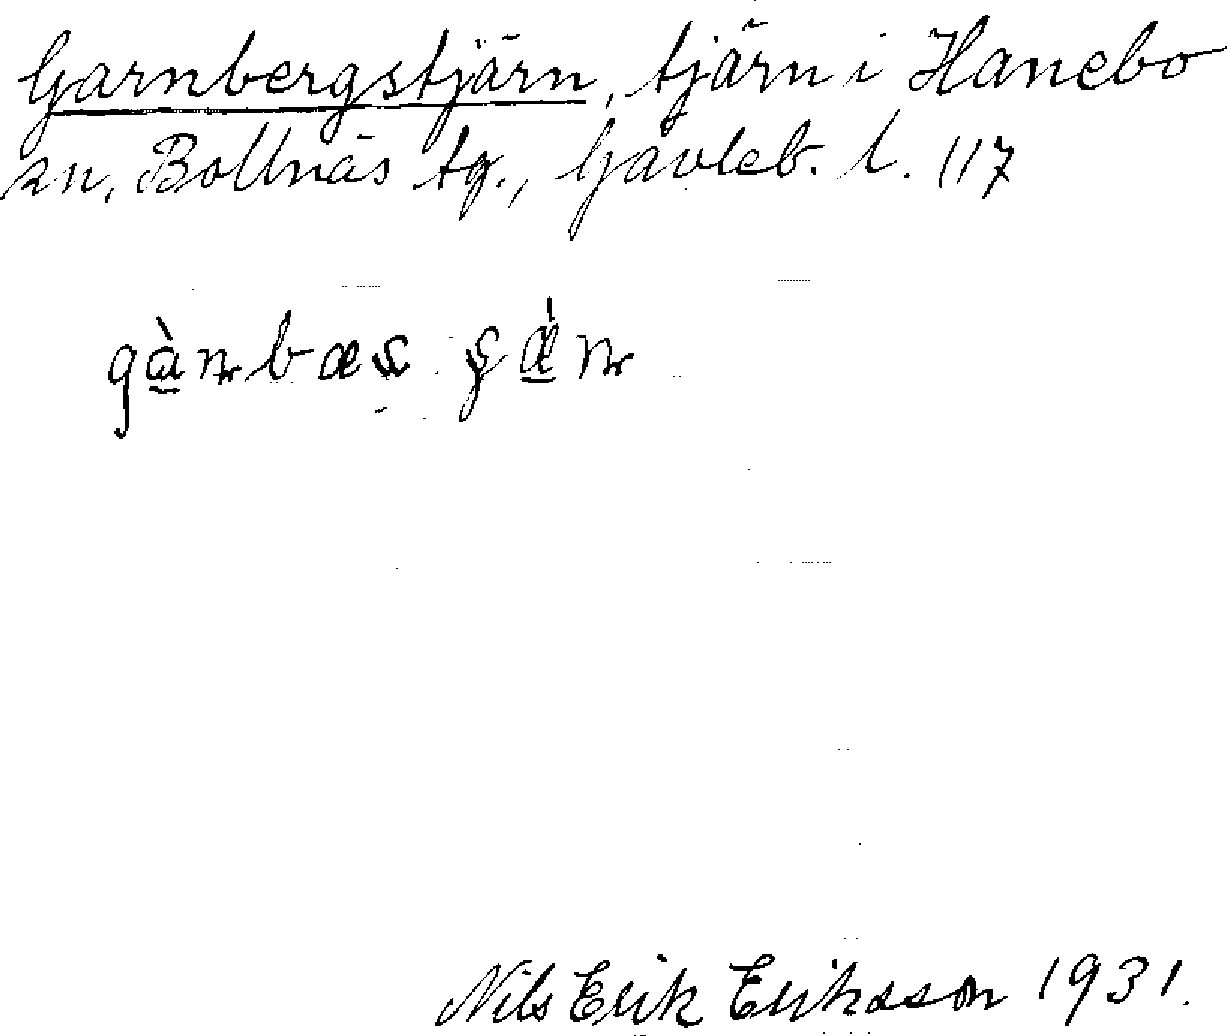 Garnbergstjärn, tjärn i Hanebo
sn, Bollnäs tg., Gävleb. l. 117
gànbæs sæ̀n
Nils Erik Eriksson 1931.